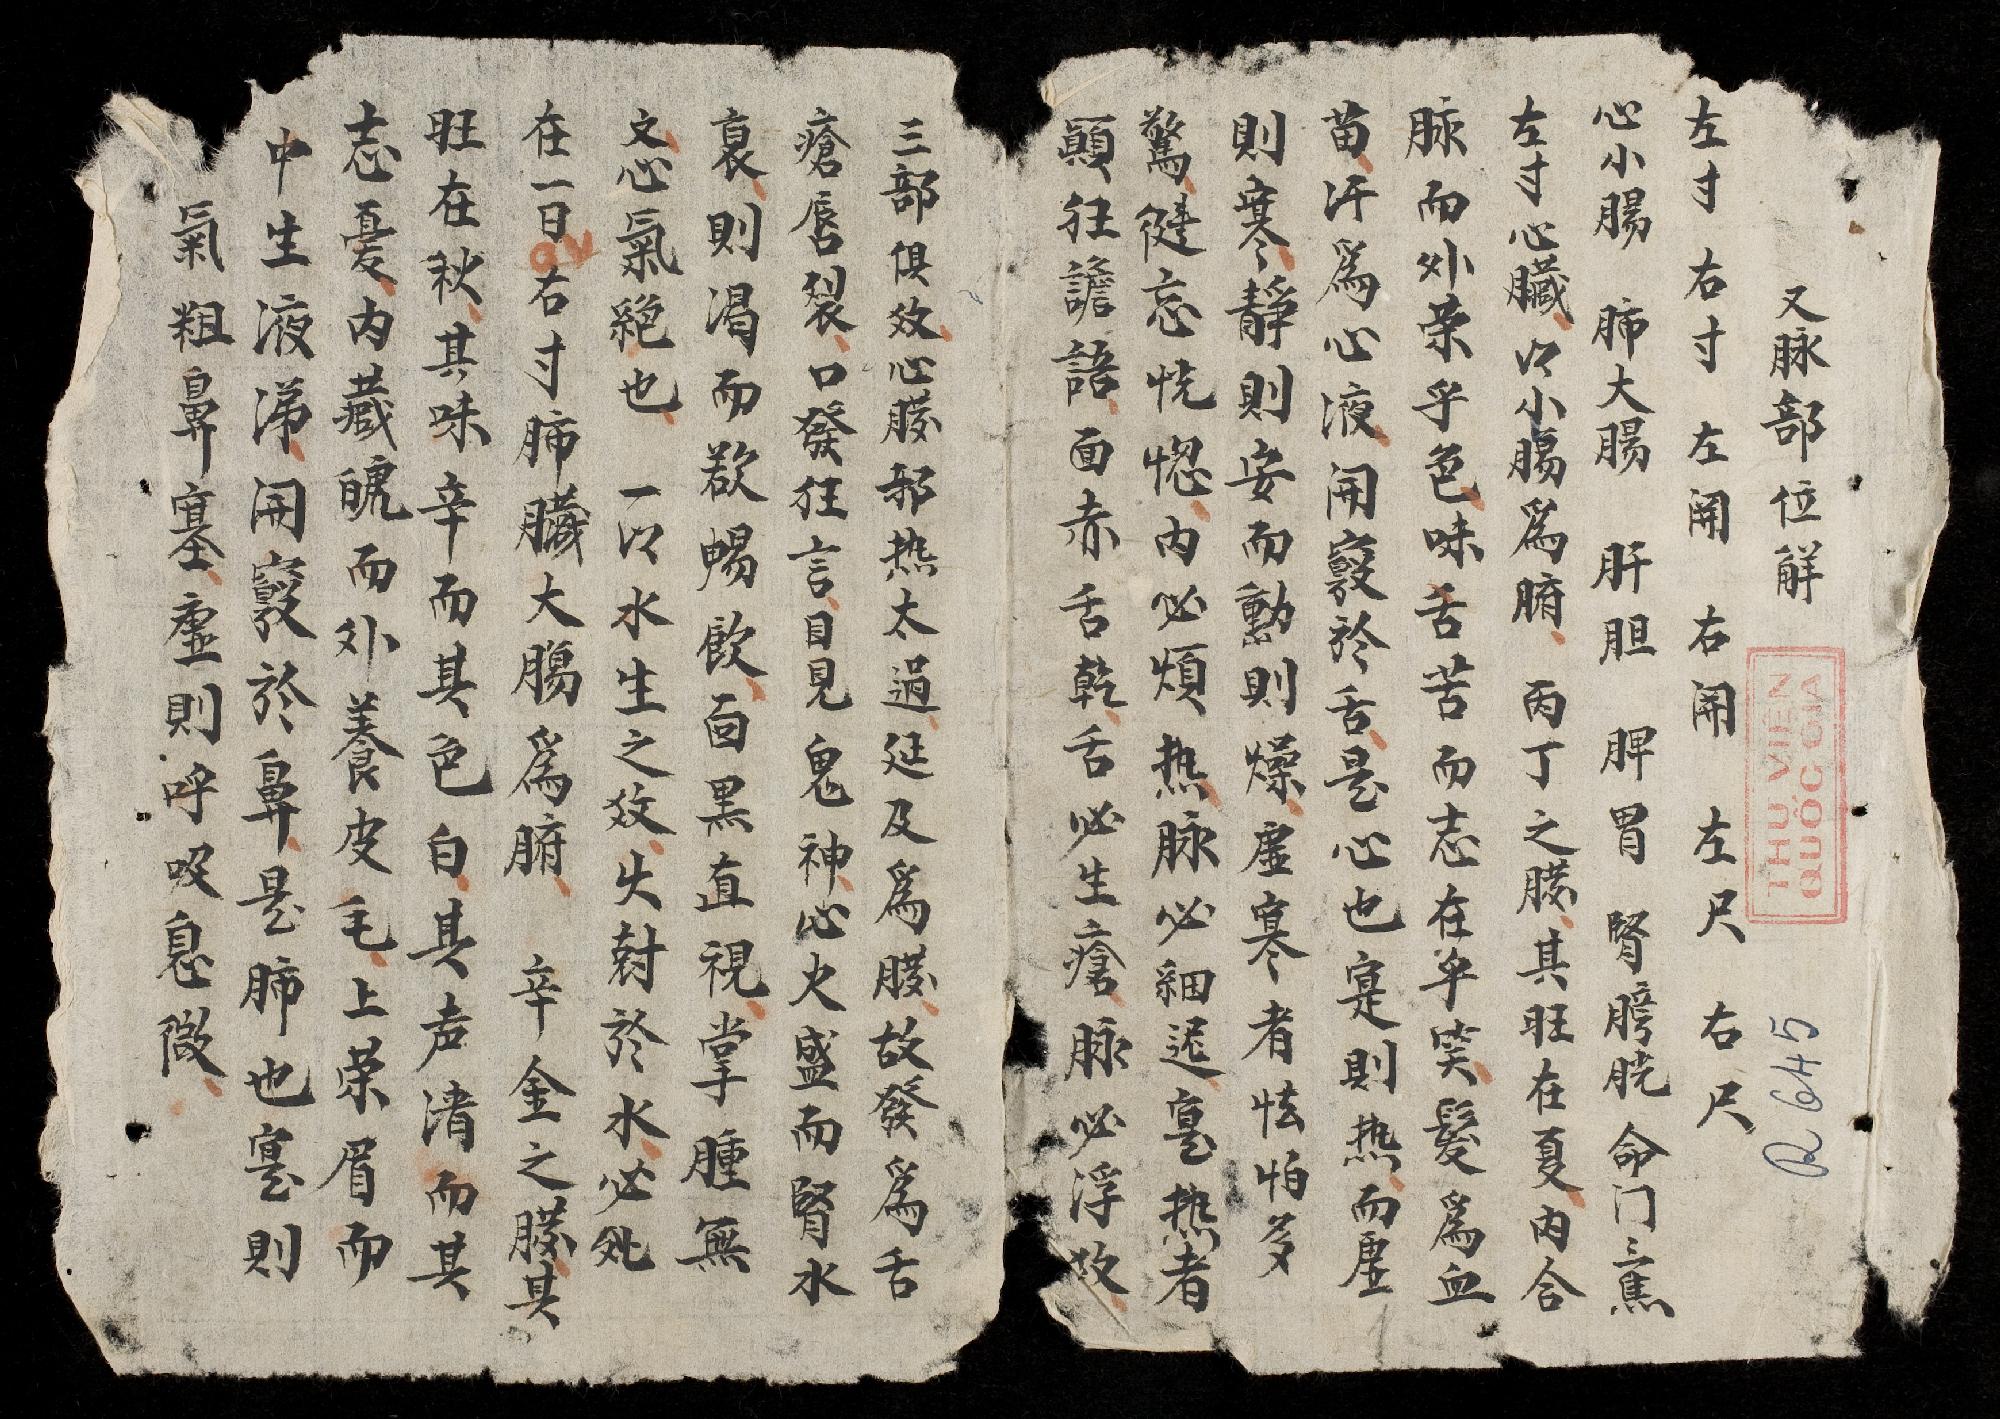 又脉部位解
左寸 右寸 左関 右関 左尺 右尺
心小腸 肺大腸 肝胆 脾胃 腎膀胱 命门三焦
左寸心臓以小腸為腑、丙丁之脉、其旺在夏、内合
脉而外荣乎色、味舌苦而志在年笑、髮為血
苗、汗為心液、開竅於舌、是心也寔則热、而虚
則寒、靜則安而動則燥、虚寒者怯怕多
驚、健忘恍惚、内必煩热、脉必細遅、寔热者
顛狂譫語、面赤舌乾、舌必生瘡、脉必浮数、
三部俱效、心脉邪热太過、延及為脉、故發為舌
瘡唇裂、口發狂言、目見鬼神、心火盛而腎水
衰、則渴而欲暢飲、面黑直視、掌腫無
文、心氣絕也、一以水生之效、失尅於水、必死
在一日 右寸肺臓大腸為腑、辛金之脉、其
旺在秋、其味辛而其色白、其声清而其
志憂、内藏魄而外養皮毛、上荣眉而
中生液涕、開竅於鼻、是肺也寔則
氣粗鼻塞、虚則呼吸息微、
THƯ VIỆN
QUỐC GIA
R 645